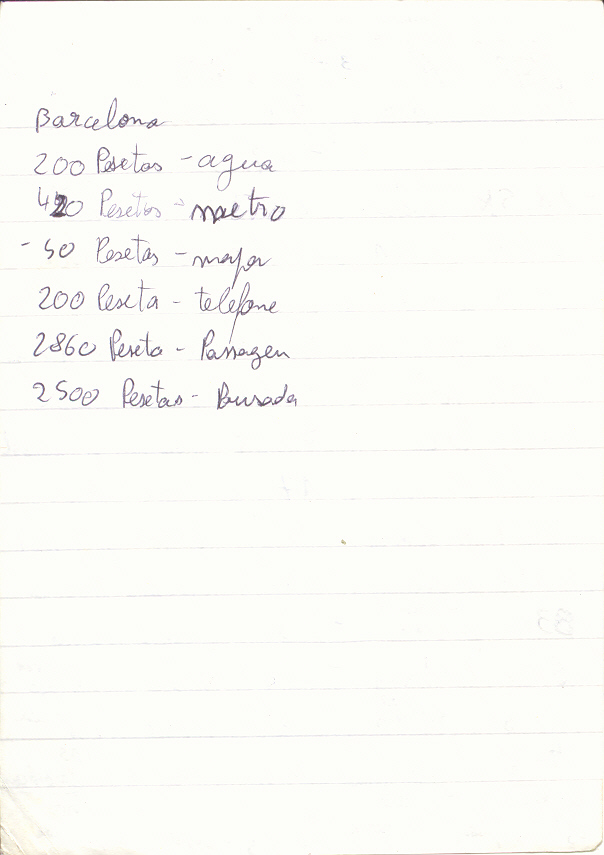 Barcelona
200 Pesetas - agua
420 Pesetas - metro
- 50 Pesetas - mapa
200 Peseta - telefone
2860 Peseta - Passagen
2500 Pesetas -